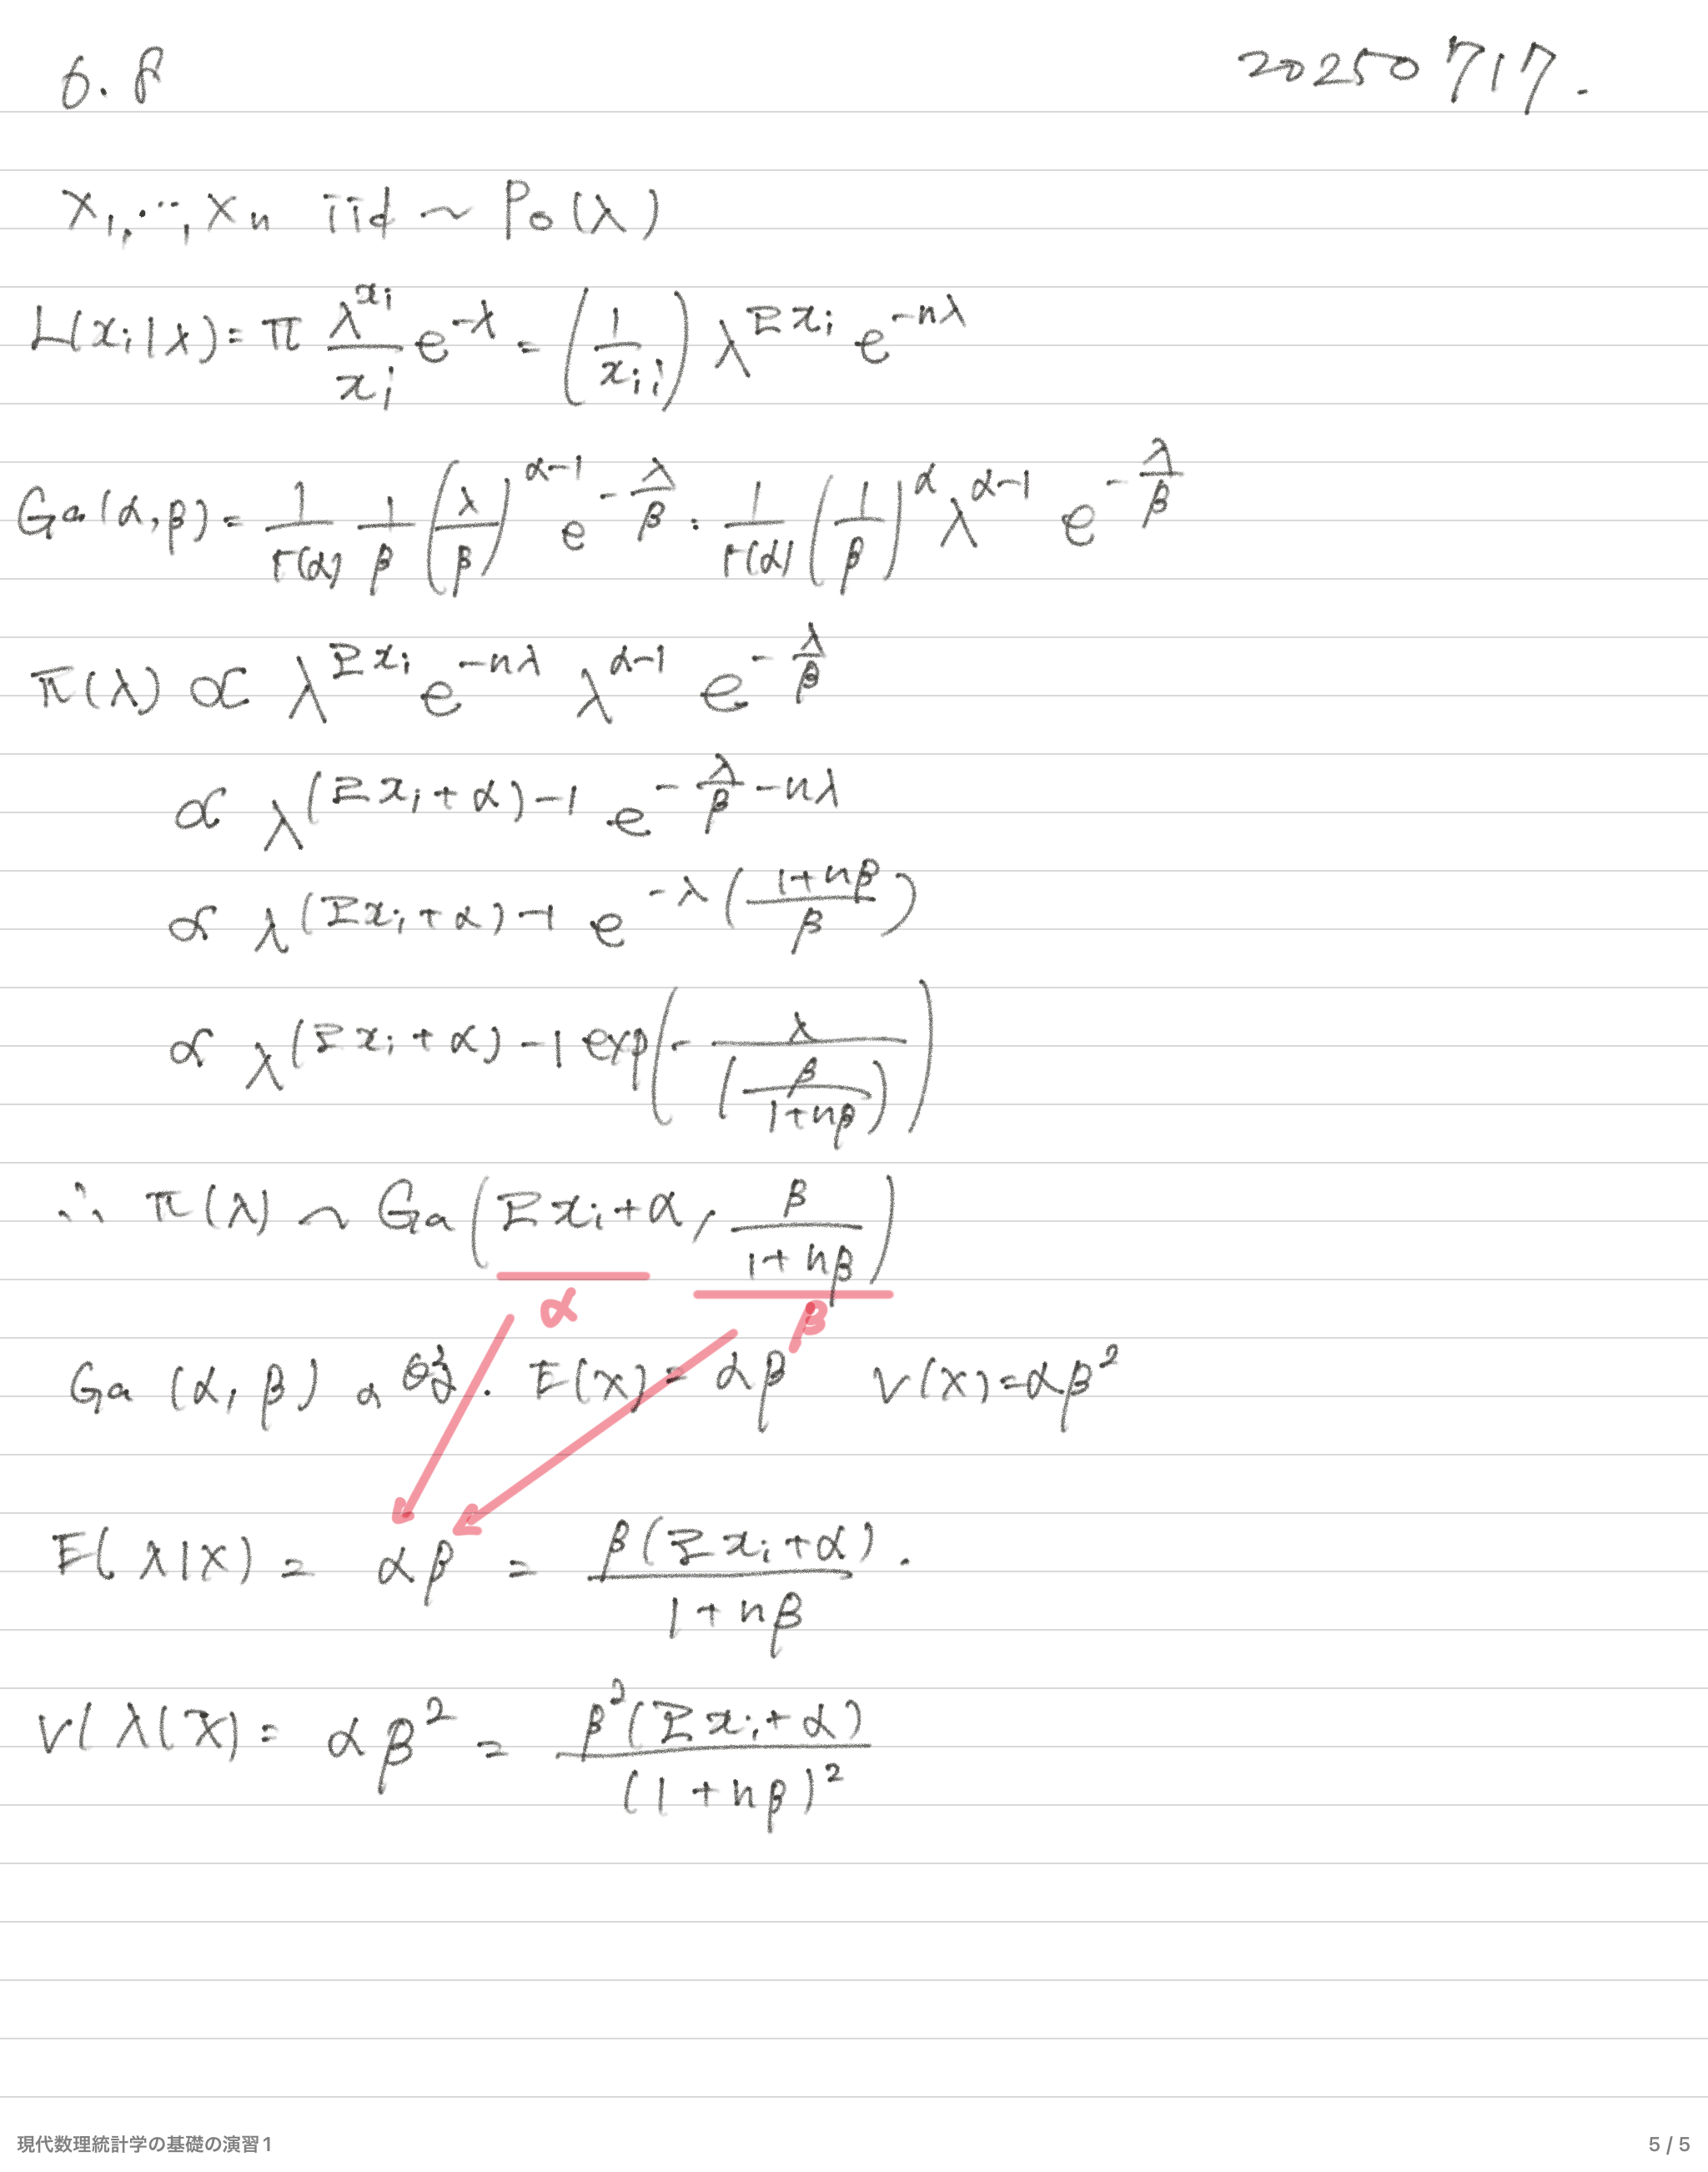 6.8
20250717.
X₁,…,Xₙ iid ~ Po(λ)
L(xᵢ|λ) = π λ^{xᵢ}/xᵢ e^{-λ} = (1/xᵢ¡) λ^{Σxᵢ} e^{-nλ}
Ga(α,β) = 1/Γ(α) 1/β (λ/β)^{α-1} e^{-λ/β} : 1/Γ(α) (1/β)^α λ^{α-1} e^{-λ/β}
π(λ) ∝ λ^{Σxᵢ} e^{-nλ} λ^{α-1} e^{-λ/β}
∝ λ^{(Σxᵢ+α)-1} e^{-λ/β-nλ}
∝ λ^{(Σxᵢ+α)-1} e^{-λ((1+nβ)/β)}
∝ λ^{(Σxᵢ+α)-1} exp(-λ/(β/(1+nβ)))
∴ π(λ) ~ Ga(Σxᵢ+α, β/(1+nβ))
α β
Ga(α,β) の . E(X) = αβ V(X)=αβ²
E(λ|X) = αβ = β(Σxᵢ+α)/(1+nβ) .
V(λ|X) = αβ² = β²(Σxᵢ+α)/(1+nβ)²
現代数理統計学の基礎の演習1
5 / 5